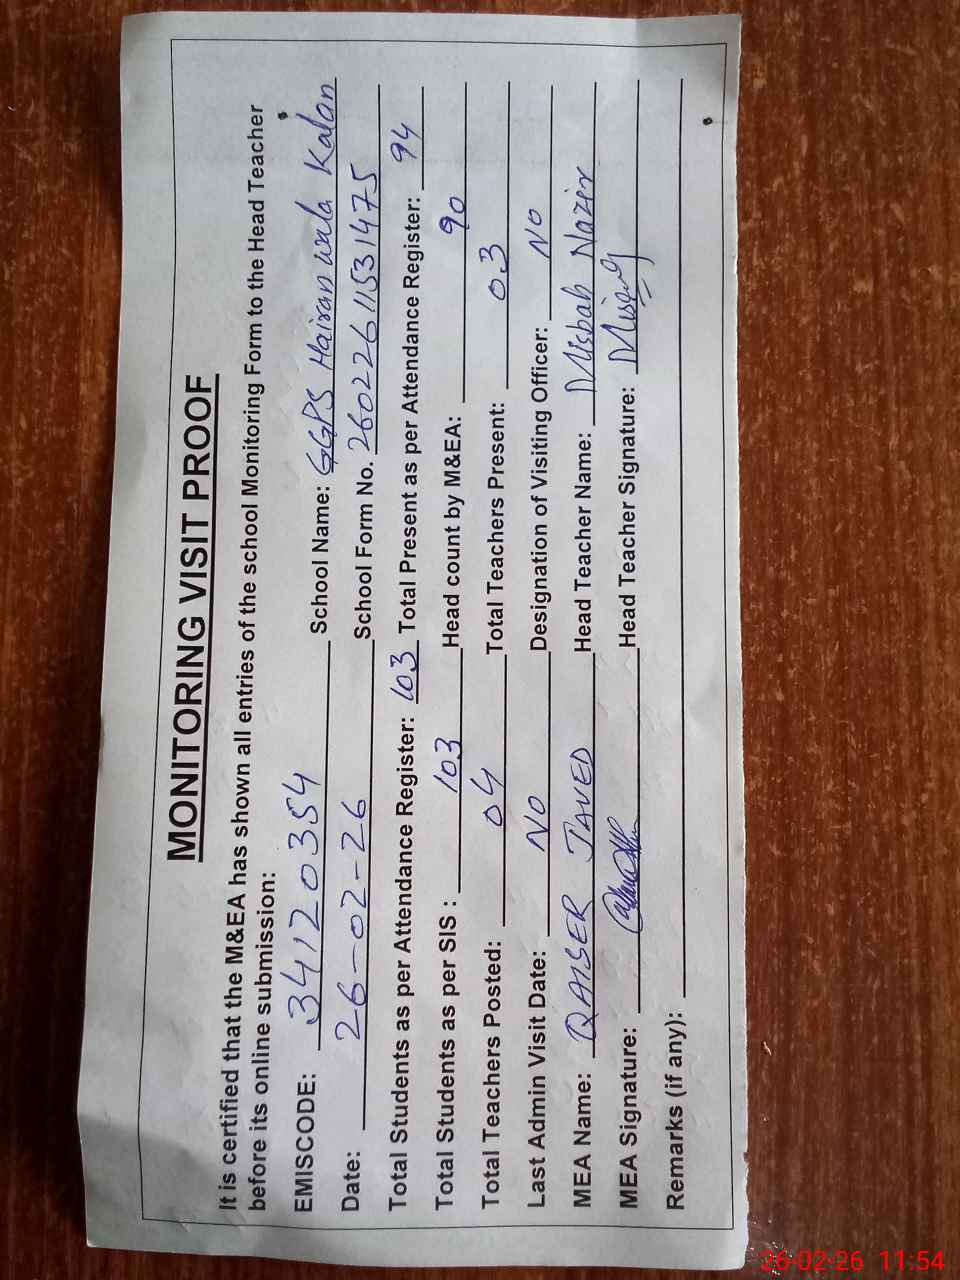 MONITORING VISIT PROOF
It is certified that the M&EA has shown all entries of the school Monitoring Form to the Head Teacher
before its online submission:
EMISCODE: 34120354 School Name: GGPS Hairanwala Kalan
Date: 26-02-26 School Form No. 26022611531475
Total Students as per Attendance Register: 103 Total Present as per Attendance Register: 94
Total Students as per SIS : 103 Head count by M&EA: 90
Total Teachers Posted: 04 Total Teachers Present: 03
Last Admin Visit Date: NO Designation of Visiting Officer: NO
MEA Name: QAISER JAVED Head Teacher Name: Misbah Nazir
MEA Signature: Head Teacher Signature:
Remarks (if any):
26-02-26 11:54